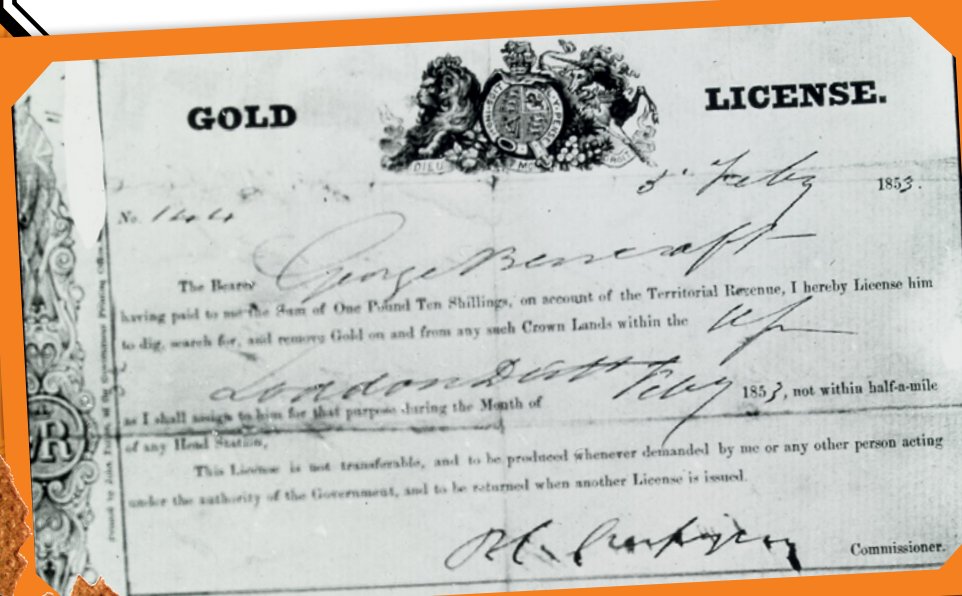 GOLD LICENSE.
DIEU ET MON DROIT
5 Feby 1853.
No. 1444
The Bearer George Bencraft
having paid to me the Sum of One Pound Ten Shillings, on account of the Territorial Revenue, I hereby License him
to dig, search for, and remove Gold on and from any such Crown Lands within the
Loddon Distt
as I shall assign to him for that purpose during the Month of Feby 1853, not within half-a-mile
of any Head Station.
This License is not transferable, and to be produced whenever demanded by me or any other person acting
under the authority of the Government, and to be returned when another License is issued.
Commissioner.
VR
Printed by John Ferres, at the Government Printing Office